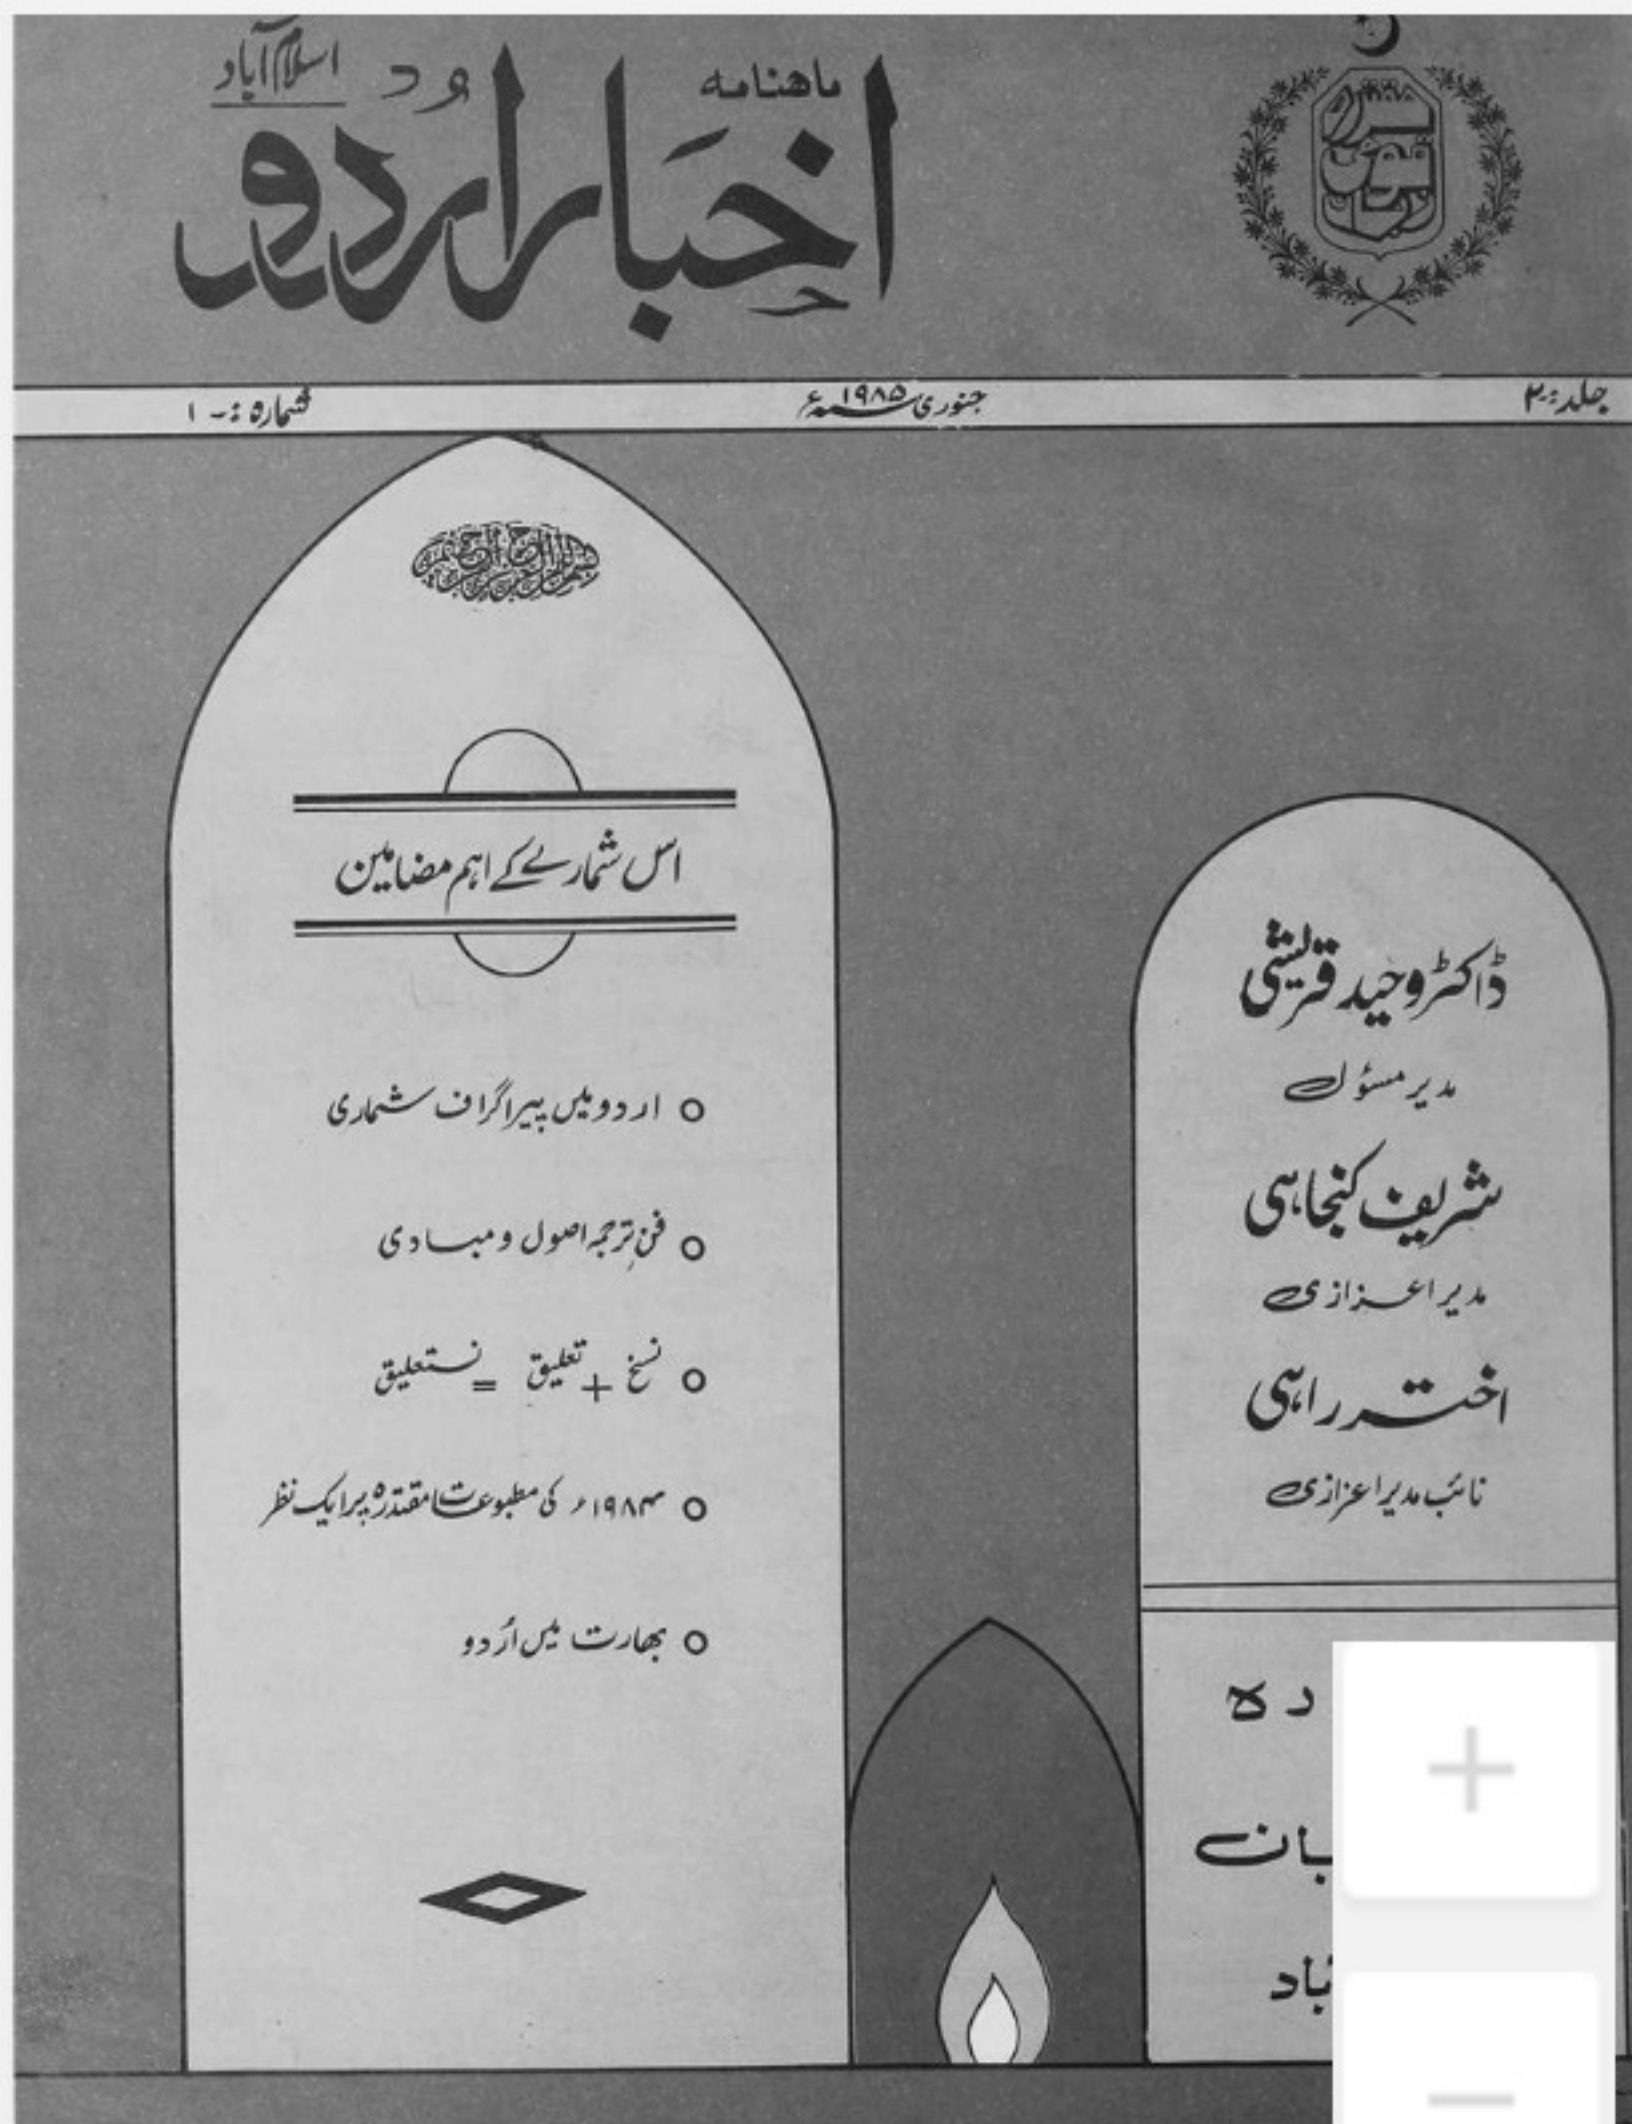 ماهنامه
اسلام آباد
اخبار اردو
جلد :- ۲
جنوری ۱۹۸۵ء
شمارہ :- ۱
اس شمارے کے اہم مضامین
اردو میں پیراگراف شماری
فنِ ترجمہ اصول و مبادی
نسخ + تعلیق = نستعلیق
۱۹۸۴ء کی مطبوعات مقتدرہ پر ایک نظر
بھارت میں اُردو
ڈاکٹر وحید قریشی
مدیر مسؤل
شریف کنجاہی
مدیر اعزازی
اختر راہی
نائب مدیر اعزازی